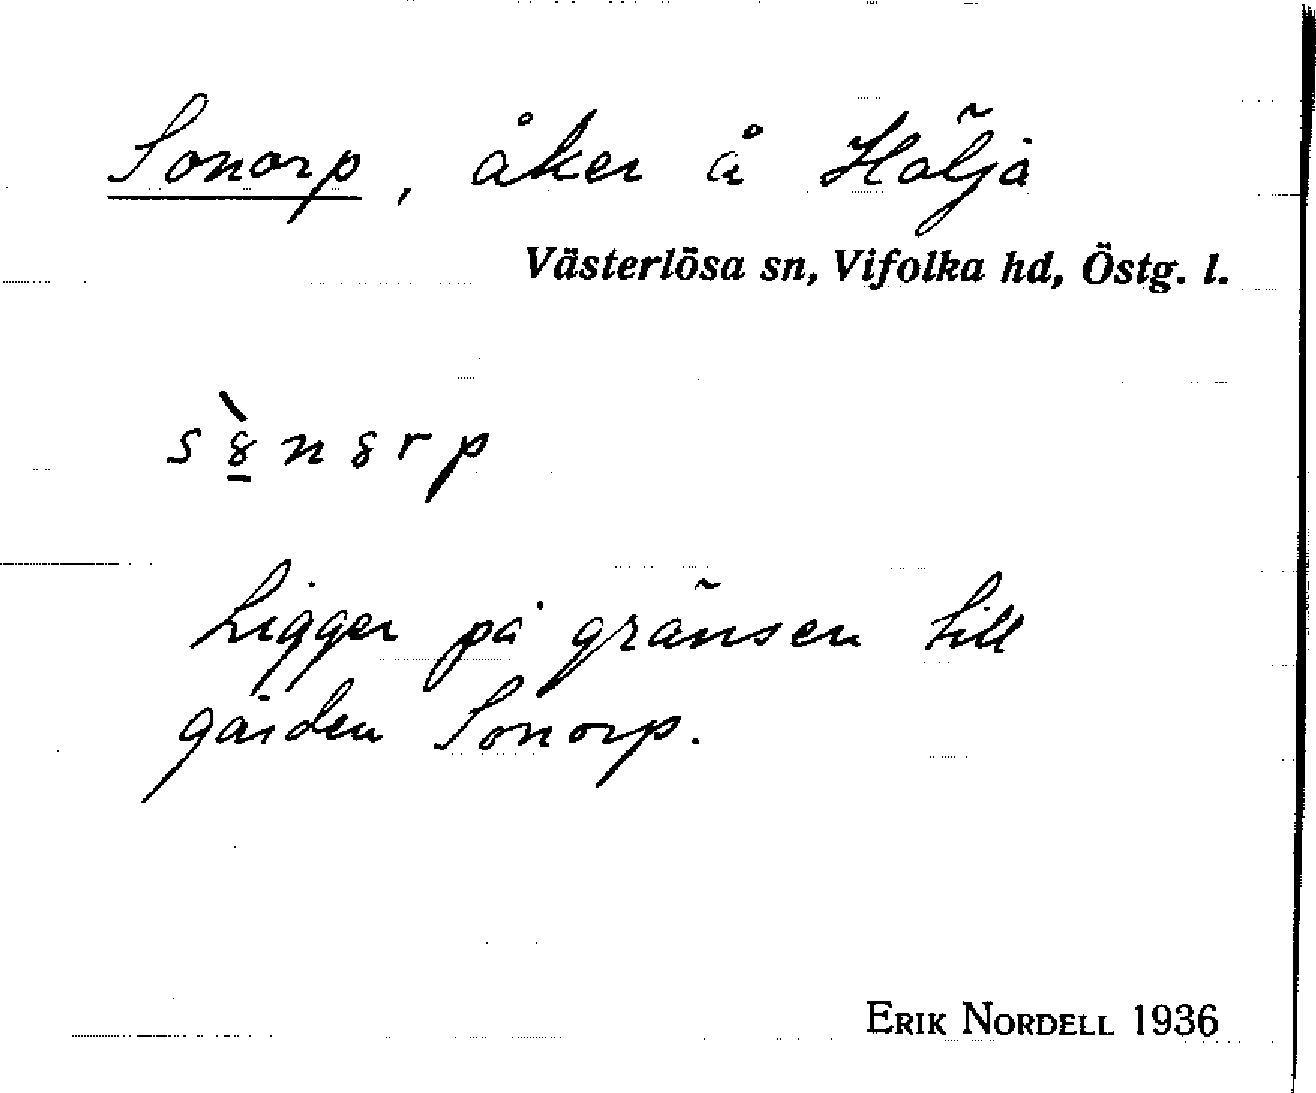 Sonorp, åker å Hälja
Västerlösa sn, Vifolka hd, Östg. l.
Ligger på gränsen till
gården Sonorp.
ERIK NORDELL 1936